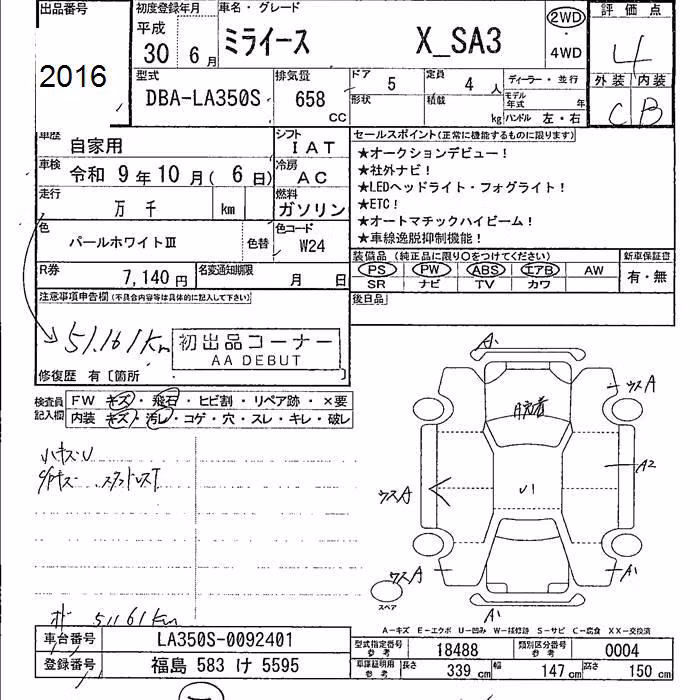 出品番号
2016
初度登録年月
平成
30 年 6 月
車名・グレード
ミライース X_SA3
2WD
・
4WD
評価点
4
外装 内装
C B
型式
DBA-LA350S
排気量
658 CC
ドア 5
定員 4 人
形状
積載 kg
ディーラー・並行
モデル年式 年
ハンドル 左・右
車歴
自家用
シフト
IAT
車検
令和 9 年 10 月 ( 6 日)
冷房
AC
走行
万 千 km
燃料
ガソリン
色
パールホワイトIII
色替
色コード
W24
R券
7,140 円
名変通知期限
月 日
セールスポイント(正常に機能するものに限ります)
★オークションデビュー!
★社外ナビ!
★LEDヘッドライト・フォグライト!
★ETC!
★オートマチックハイビーム!
★車線逸脱抑制機能!
装備品 (純正品に限り○をつけてください)
PS PW ABS エアB AW
SR ナビ TV カワ
新車保証書
有・無
後日品
注意事項申告欄 (不具合内容等は具体的に記入して下さい)
51.161Km
初出品コーナー
AA DEBUT
修復歴 有〔箇所 〕
検査員記入欄
FW キズ・飛石・ヒビ割・リペア跡・×要
内装 キズ・汚レ・コゲ・穴・スレ・キレ・破レ
オド 51161Km
A1
ウスA
A2
U1
ウスA
ウスA
A1
A1
スペア
A-キズ E-エクボ U-凹み W-補修跡 S-サビ C-腐食 XX-交換済
車台番号
LA350S-0092401
登録番号
福島 583 け 5595
型式指定番号 参考
18488
類別区分番号 参考
0004
車庫証明用 参考
長さ 339 cm 幅 147 cm 高さ 150 cm